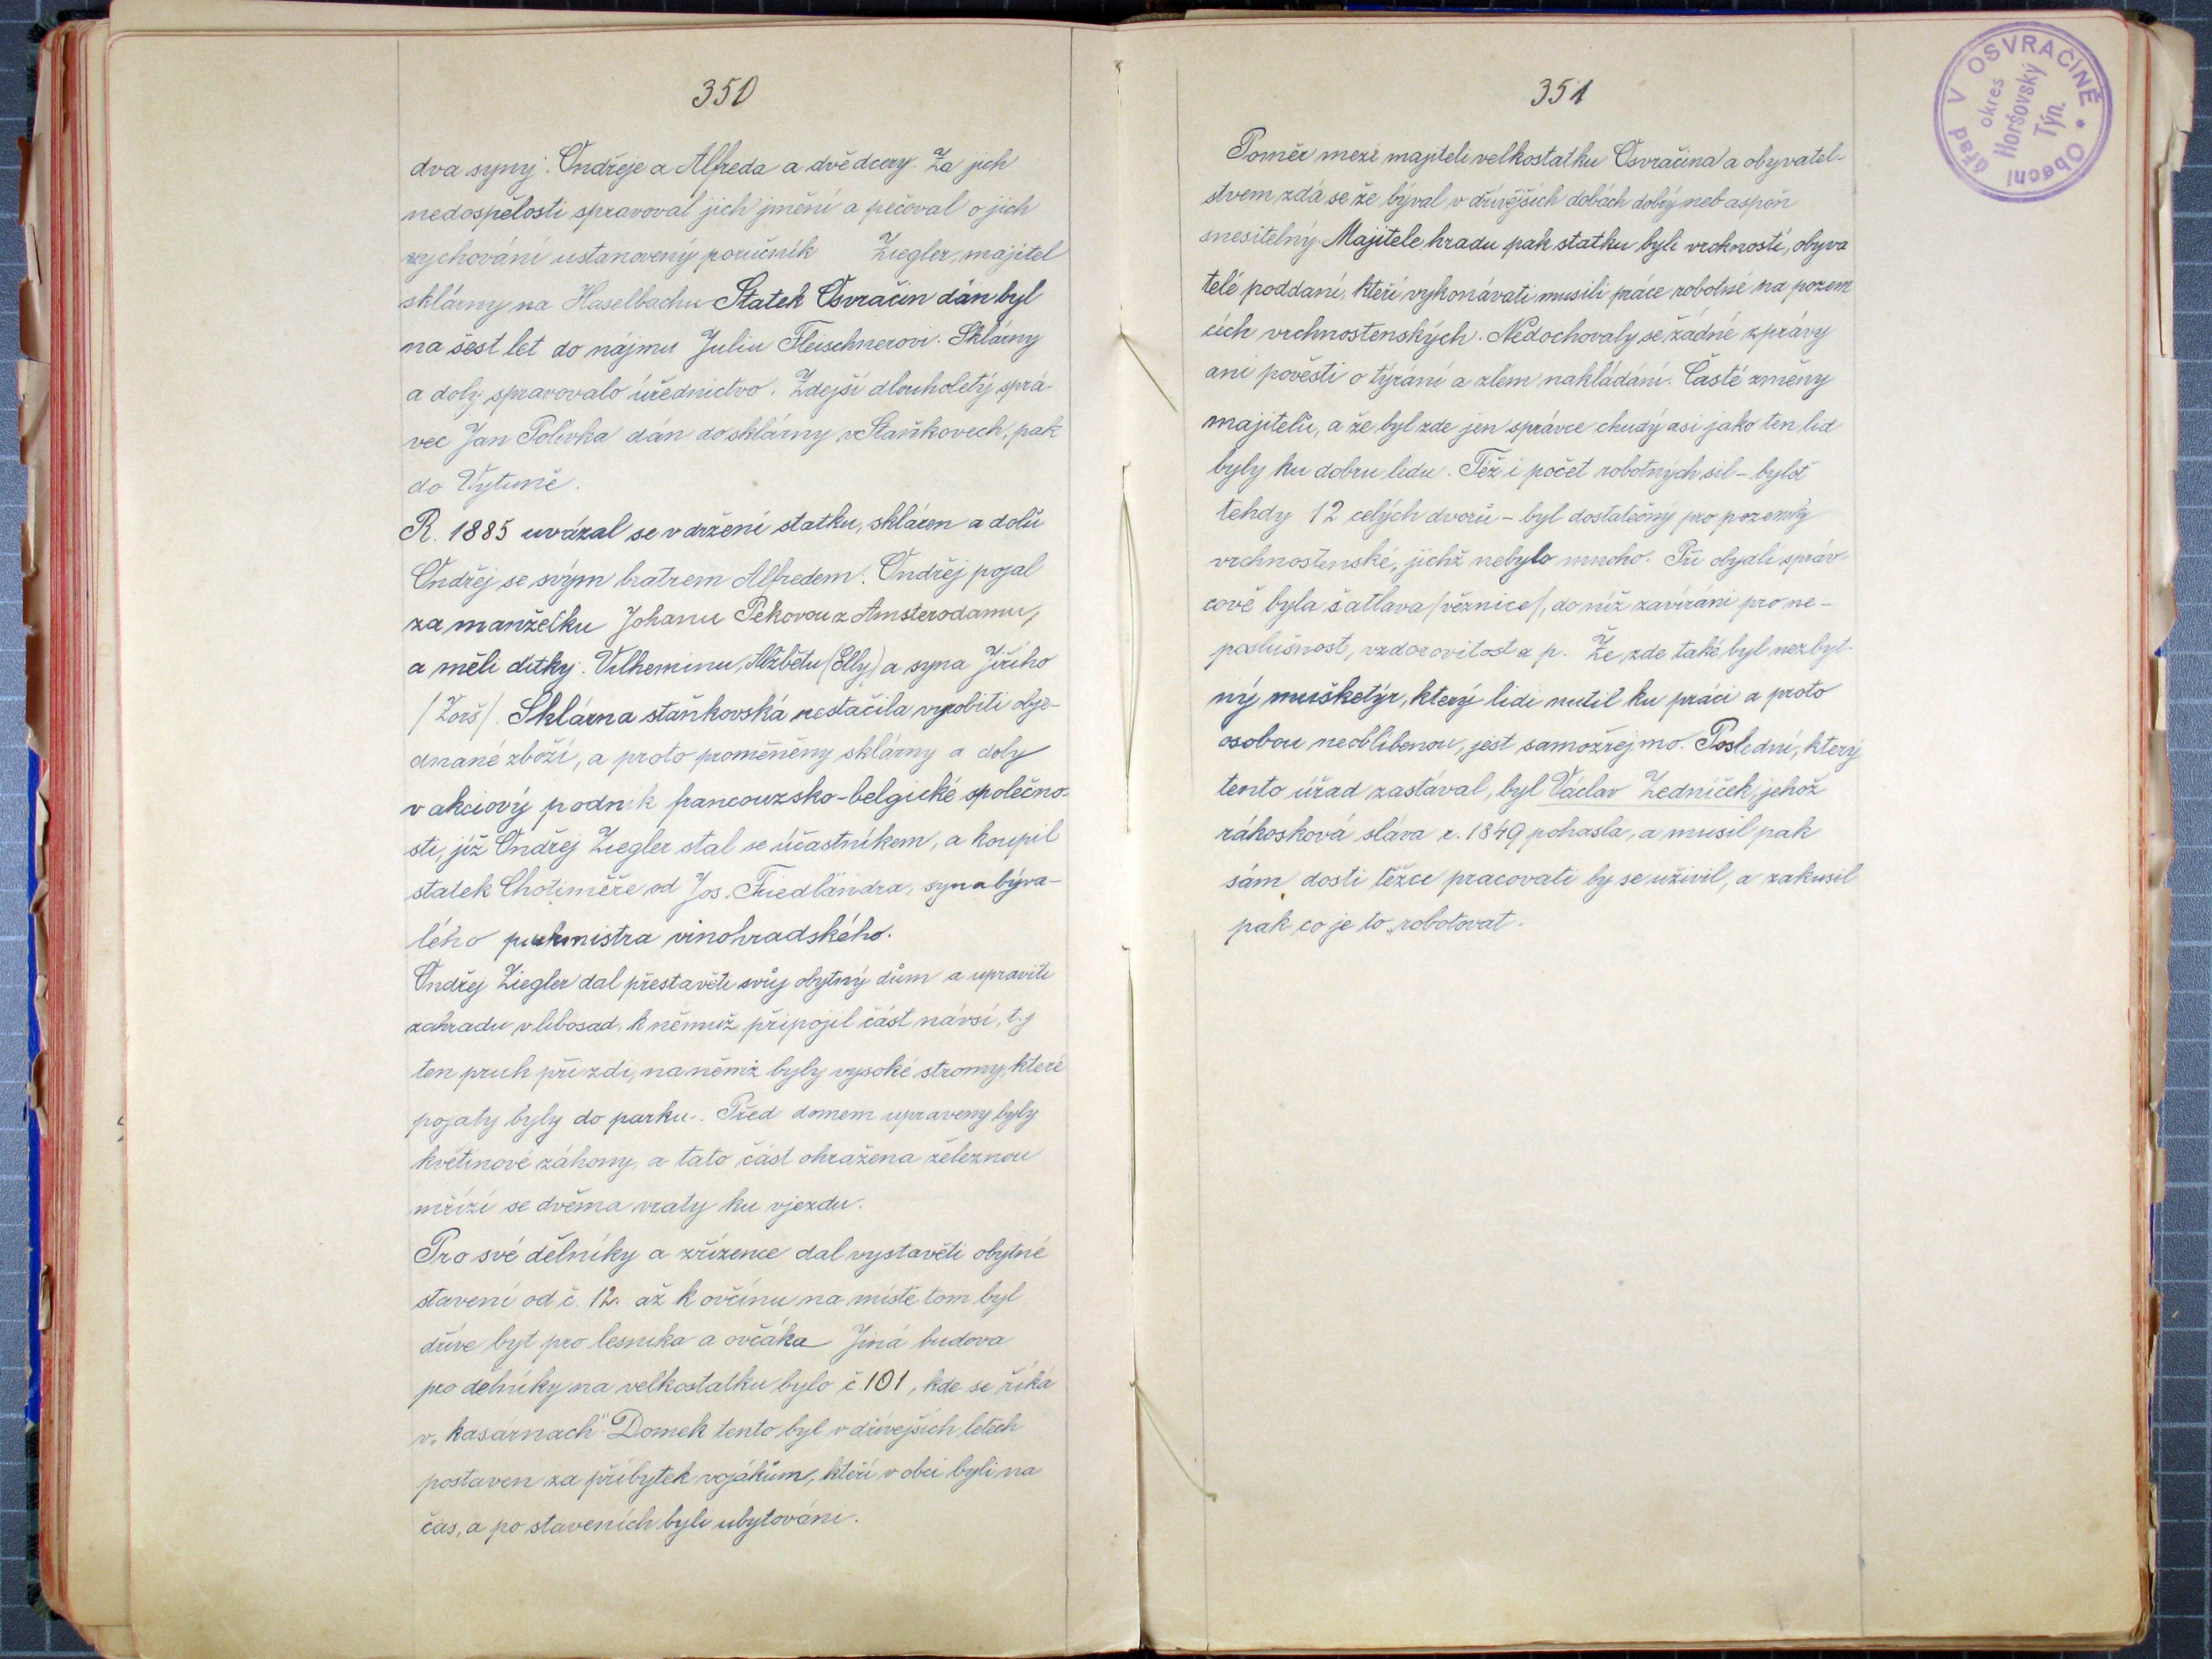 350
dva syny: Ondřeje a Alfreda a dvě dcery. Za jich
nedospělosti spravoval jich jmění a pečoval o jich
vychování ustanovený poručník Ziegler, majitel
sklárny na Haselbachu Statek Osvračín dán byl
na šest let do nájmu Juliu Fleischnerovi. Sklárny
a doly spravovalo úřednictvo. Zdejší dlouholetý sprá-
vec Jan Polívka dán do sklárny v Staňkovech, pak
do Vytuně.
R. 1885 uvázal se v držení statku, skláren a dolů
Ondřej se svým bratrem Alfredem. Ondřej pojal
za manželku Johanu Pekovou z Amsterodamu,
a měli dítky: Vilheminu, Alžbětu (Elly) a syna Jiřího
/Žorš/. Sklárna staňkovská nestačila vyrobiti obje-
dnané zboží, a proto proměněny sklárny a doly
v akciový podnik francouzsko-belgické společno-
sti, jíž Ondřej Ziegler stal se účastníkem, a koupil
statek Chotiměře od Jos. Friedländra, syna býva-
lého purkmistra vinohradského.
Ondřej Ziegler dal přestavěti svůj obytný dům a upraviti
zahradu v libosad, k němuž připojil část návsi, t.j
ten pruh při zdi, na němž byly vysoké stromy, které
pojaty byly do parku. Před domem upraveny byly
květinové záhony, a tato část ohražena železnou
mříží se dvěma vraty ku vjezdu.
Pro své dělníky a zřízence dal vystavěti obytné
stavení od č. 12. až k ovčínu na místě tom byl
dříve byt pro lesníka a ovčáka Jiná budova
pro dělníky na velkostatku bylo č. 101, kde se říká
v„ kasárnach" Domek tento byl v dřívejších letech
postaven za příbytek vojákům, kteří v obci byli na
čas, a po staveních byli ubytováni.
351
Poměr mezi majiteli velkostatku Osvračína a obyvatel-
stvem zdá se že býval v dřívějších dobách dobrý neb aspoň
snesitelný. Majitele hradu pak statku byli vrchností, obyva
telé poddaní, kteří vykonávati musili práce robotné na pozem
cích vrchnostenských. Nedochovaly se žádné zprávy
ani pověsti o týrání a zlém nakládání. Časté změny
majitelů, a že byl zde jen správce chudý asi jako ten lid
byly ku dobru lidu. Též i počet robotných sil - byloť
tehdy 12 celých dvorů - byl dostatečný pro pozemky
vrchnostenské, jichž nebylo mnoho. Při obydlí správ-
cově byla šatlava /věznice/, do níž zavíráni pro ne-
poslušnost, vzdorovitost a p. Že zde také byl nezbyt-
ný mušketýr, který lidi nutil ku práci a proto
osobou neoblíbenou, jest samozřejmo. Poslední, který
tento úřad zastával, byl Václav Zedníček, jehož
rákosková sláva r. 1849 pohasla, a musil pak
sám dosti těžce pracovati by se uživil, a zakusil
pak co je to „robotovat.
Obecní úřad V OSVRAČÍNĚ *
okres
Horšovský
Týn.